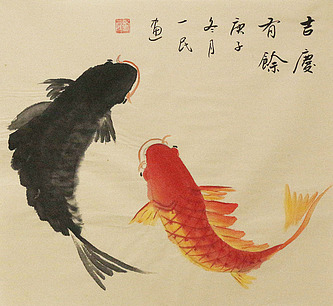 吉慶
有餘
庚子
冬月
一民
画